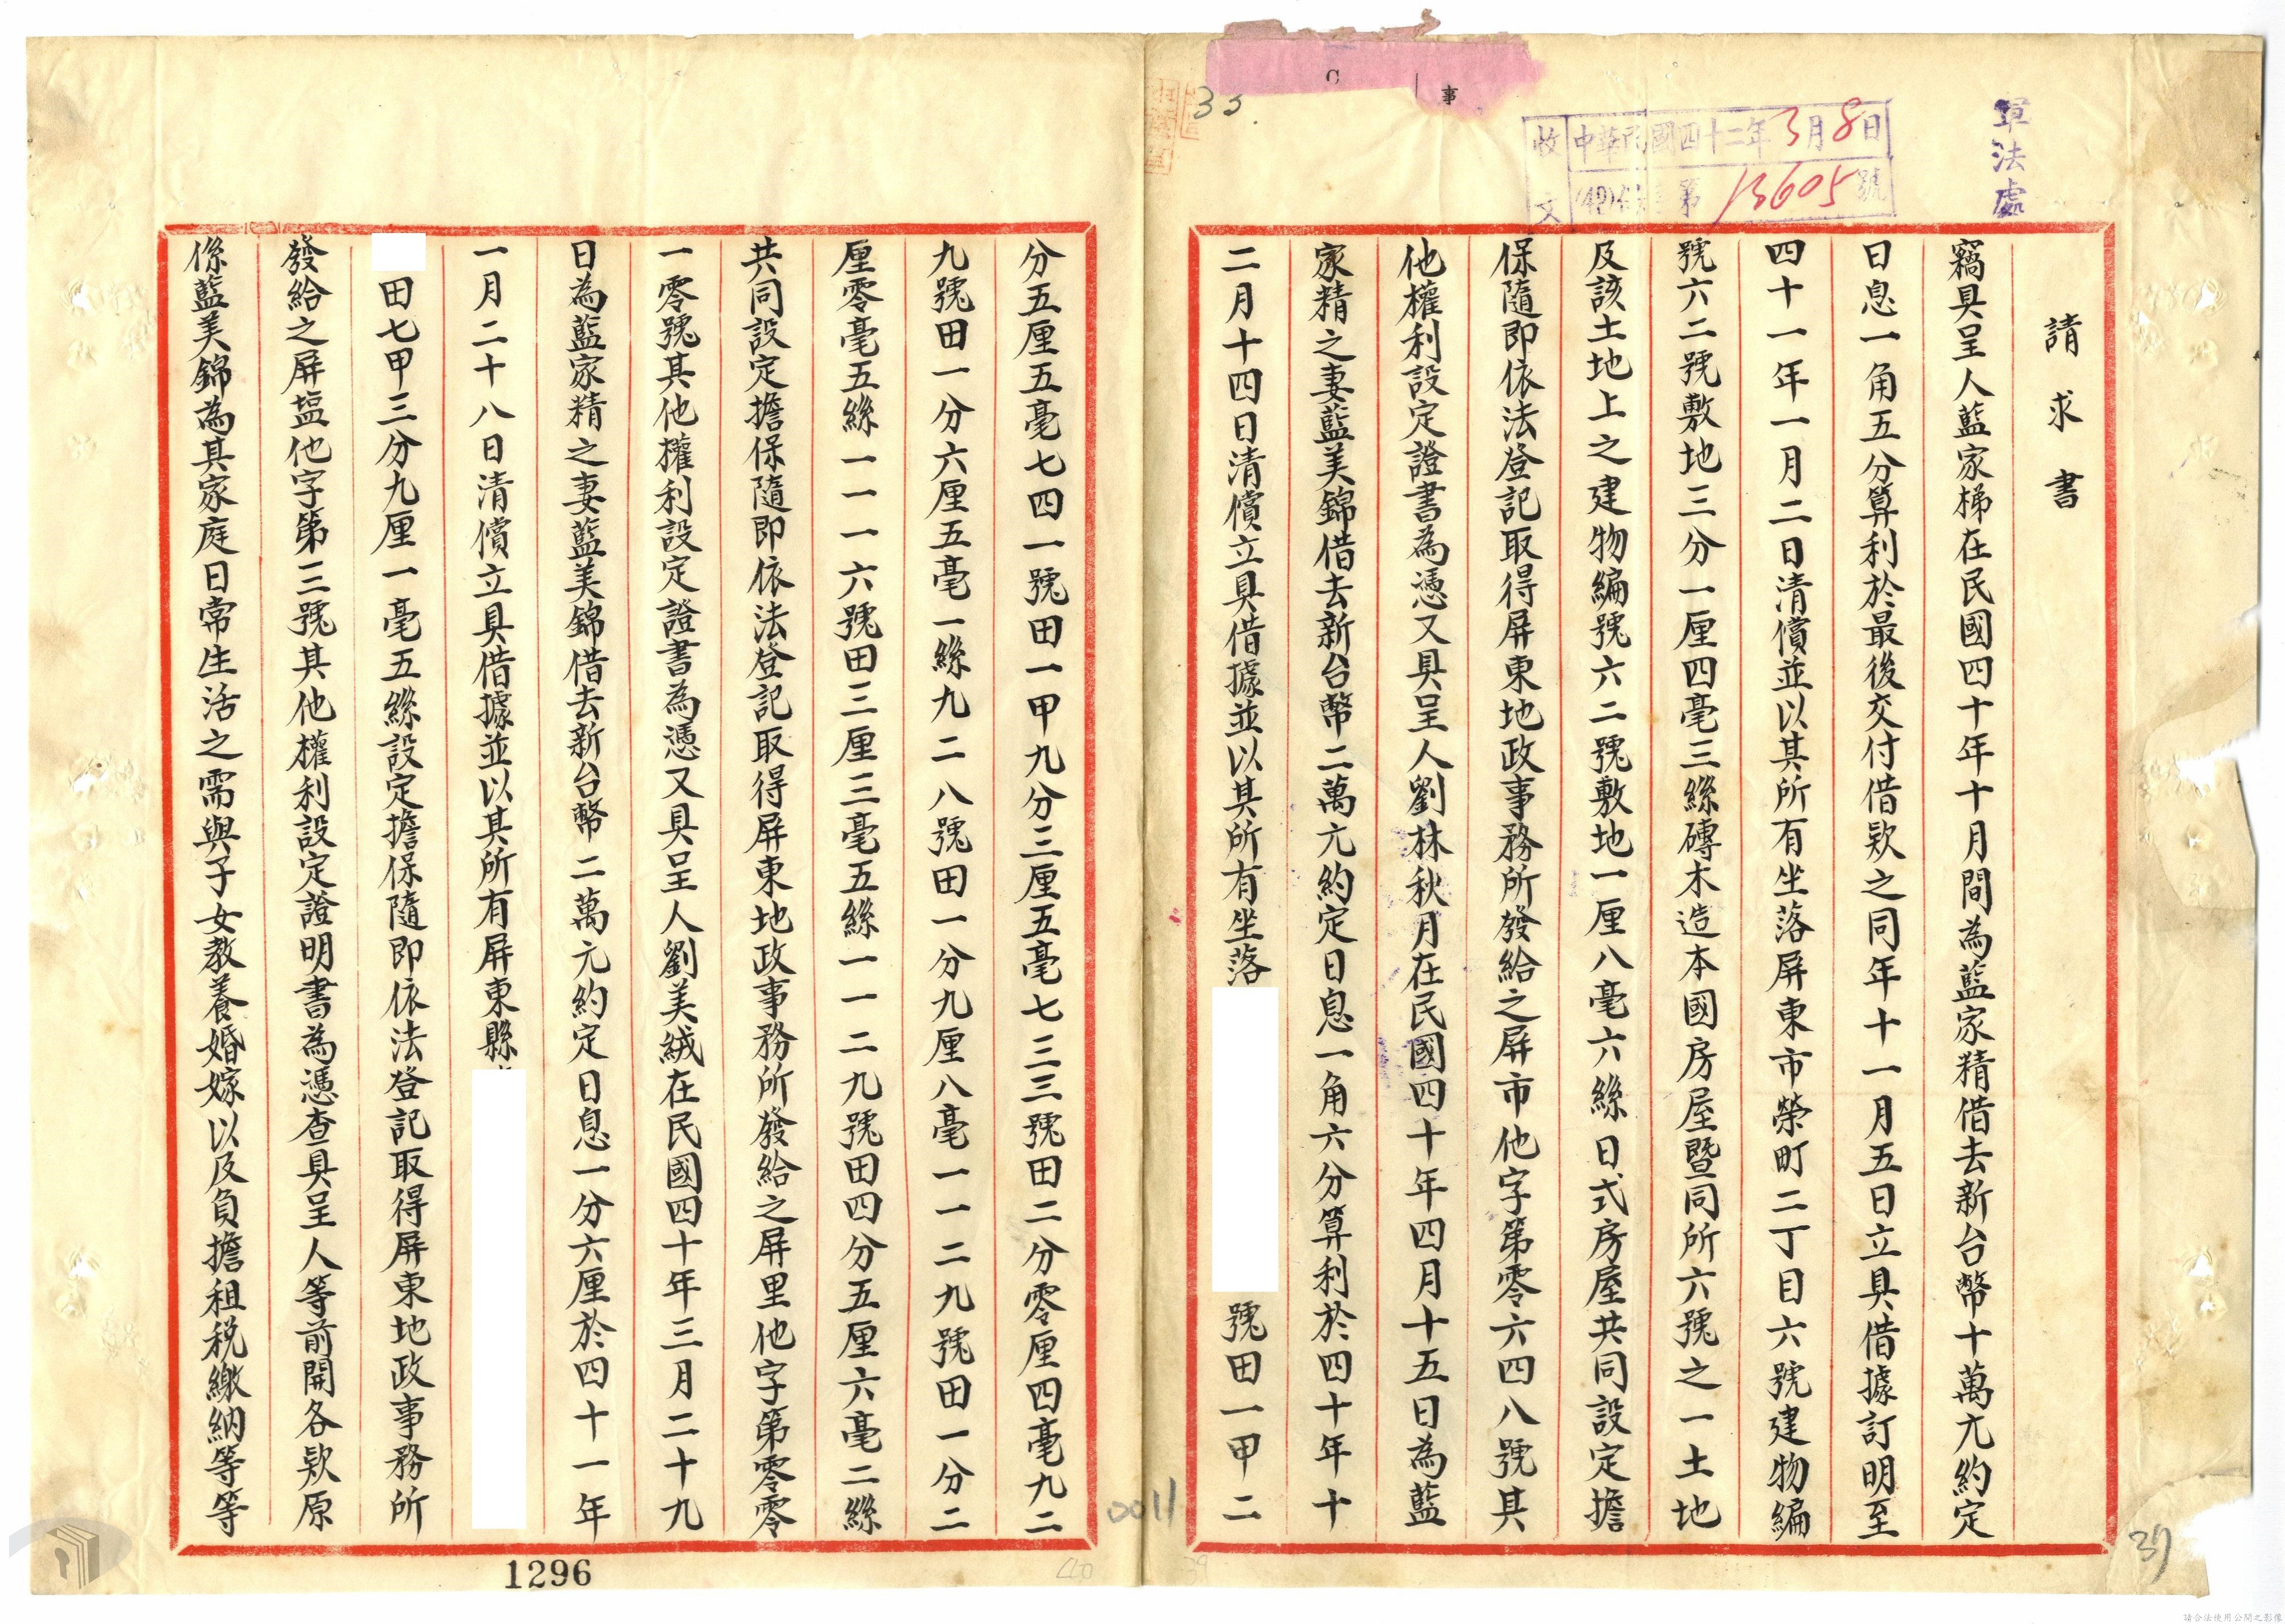 軍法處
收文
中華民國四十二年3月8日
第13605號
事
請求書
竊具呈人藍家梯在民國四十年十月間為藍家精借去新台幣十萬元約定
日息一角五分算利於最後交付借款之同年十一月五日立具借據訂明至
四十一年一月二日清償並以其所有坐落屏東市榮町二丁目六號建物編
號六二號敷地三分一厘四毫三絲磚木造本國房屋暨同所六號之一土地
及該土地上之建物編號六二號敷地一厘八毫六絲日式房屋共同設定擔
保隨即依法登記取得屏東地政事務所發給之屏市他字第零六四八號其
他權利設定證書為憑又具呈人劉林秋月在民國四十年四月十五日為藍
家精之妻藍美錦借去新台幣二萬元約定日息一角六分算利於四十年十
二月十四日清償立具借據並以其所有坐落
號田一甲二
分五厘五毫七四一號田一甲九分三厘五毫七三三號田二分零厘四毫九二
九號田一分六厘五毫一絲九二八號田一分九厘八毫一一二九號田一分二
厘零毫五絲一一一六號田三厘三毫五絲一一二九號田四分五厘六毫二絲
共同設定擔保隨即依法登記取得屏東地政事務所發給之屏里他字第零零
一零號其他權利設定證書為憑又具呈人劉美絨在民國四十年三月二十九
日為藍家精之妻藍美錦借去新台幣二萬元約定日息一分六厘於四十一年
一月二十八日清償立具借據並以其所有屏東縣
田七甲三分九厘一毫五絲設定擔保隨即依法登記取得屏東地政事務所
發給之屏塩他字第三號其他權利設定證明書為憑查具呈人等前開各款原
係藍美錦為其家庭日常生活之需與子女教養婚嫁以及負擔租稅繳納等等
0011
37
39
40
1296
請合法使用公開之影像